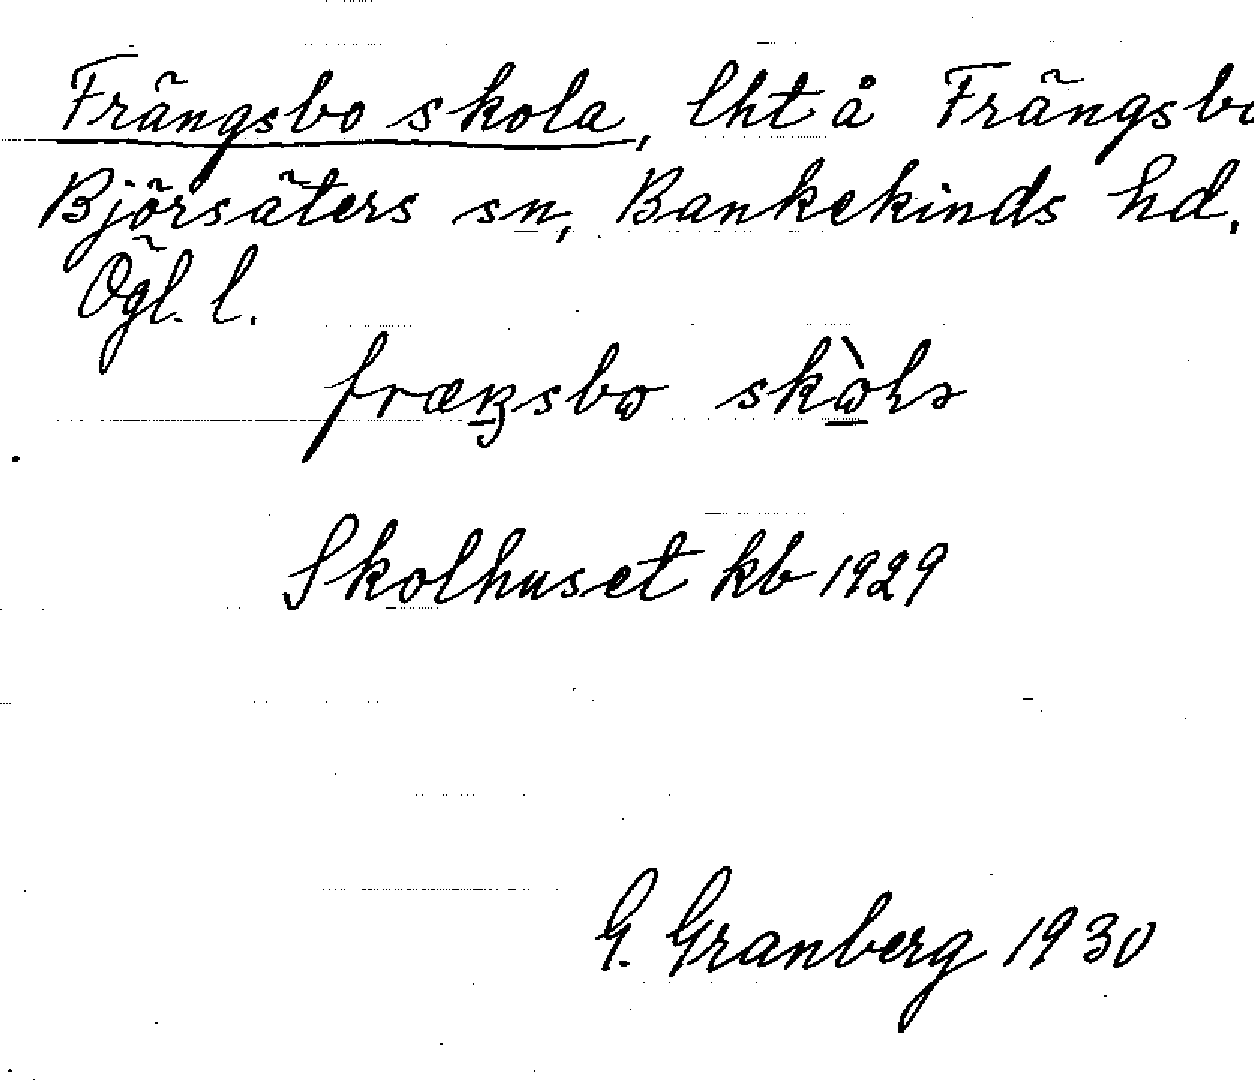 Frängsbo skola, lht å Frängsbo
Björsäters sn, Bankekinds hd.
Ögl. l.
Skolhuset kb 1929
G. Granberg 1930